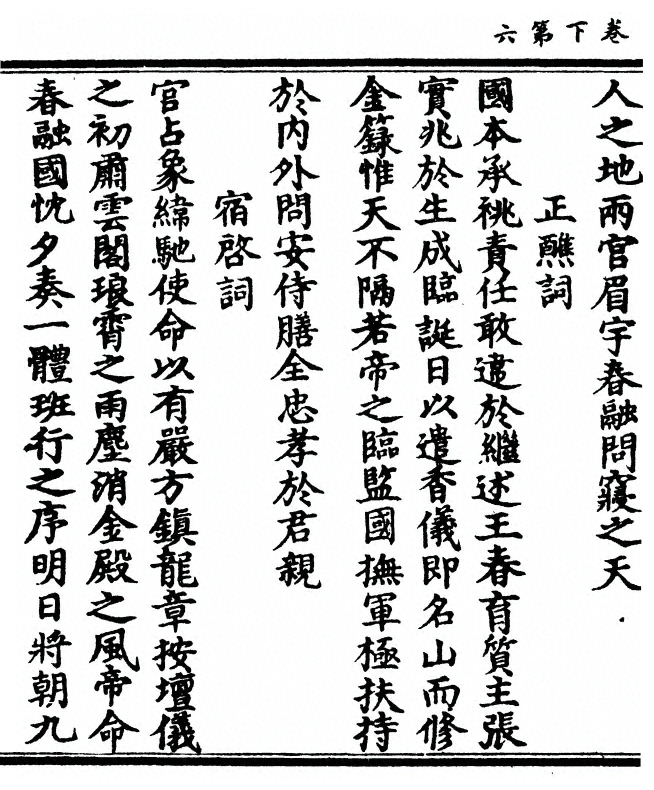 卷下第六
人之地兩宮眉宇春融問寢之天
正醮詞
國本承祧責任敢違於繼述王春育質主張
實兆於生成臨誕日以遣香儀即名山而修
金籙惟天不隔若帝之臨監國撫軍極扶持
於內外問安侍膳全忠孝於君親
宿啓詞
官占象緯馳使命以有嚴方鎮龍章按壇儀
之初肅雲閣琅霄之雨塵消金殿之風帝命
春融國忱夕奏一體班行之序明日將朝九